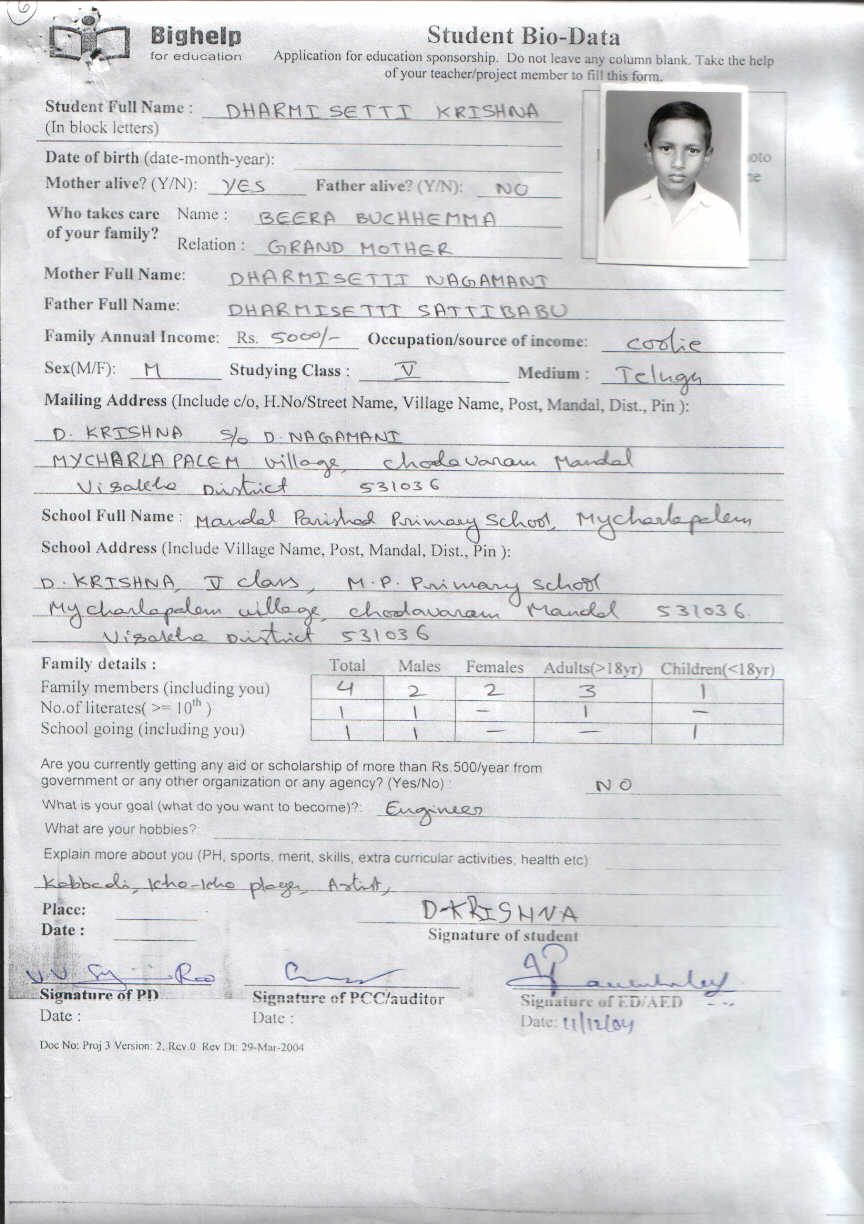 6
Bighelp
for education
Student Bio-Data
Application for education sponsorship. Do not leave any column blank. Take the help
of your teacher/project member to fill this form.
Student Full Name : DHARMISETTI KRISHNA
(In block letters)
Date of birth (date-month-year):
oto
Mother alive? (Y/N): YES Father alive? (Y/N): NO
Who takes care of your family? Name : BEERA BUCHHEMMA
Relation : GRAND MOTHER
Mother Full Name: DHARMISETTI NAGAMANI
Father Full Name: DHARMISETTI SATTIBABU
Family Annual Income: Rs. 5000/- Occupation/source of income: coolie
Sex(M/F): M Studying Class : V Medium : Telugu
Mailing Address (Include c/o, H.No/Street Name, Village Name, Post, Mandal, Dist., Pin ):
D. KRISHNA S/o D. NAGAMANI
MYCHARLA PALEM village, chodavaram Mandal
Visakha District 531036
School Full Name : Mandal Parishad Primary School, Mycharlapalem
School Address (Include Village Name, Post, Mandal, Dist., Pin ):
D. KRISHNA, V class, M.P. Primary School
Mycharlapalem village, chodavaram Mandal 531036.
Visakha District 531036
Family details : Total Males Females Adults(>18yr) Children(<18yr)
Family members (including you) 4 2 2 3 1
No.of literates( >= 10th ) 1 1 – 1 –
School going (including you) 1 1 – – 1
Are you currently getting any aid or scholarship of more than Rs.500/year from
government or any other organization or any agency? (Yes/No) : NO
What is your goal (what do you want to become)?: Engineer
What are your hobbies?:
Explain more about you (PH, sports, merit, skills, extra curricular activities, health etc)
Kabbadi, Kho-Kho player, Artist,
Place:
Date :
D-KRISHNA
Signature of student
Signature of PD Signature of PCC/auditor Signature of ED/AED
Date : Date : Date: 11/12/04
Doc No: Proj 3 Version: 2, Rev.0 Rev Dt: 29-Mar-2004